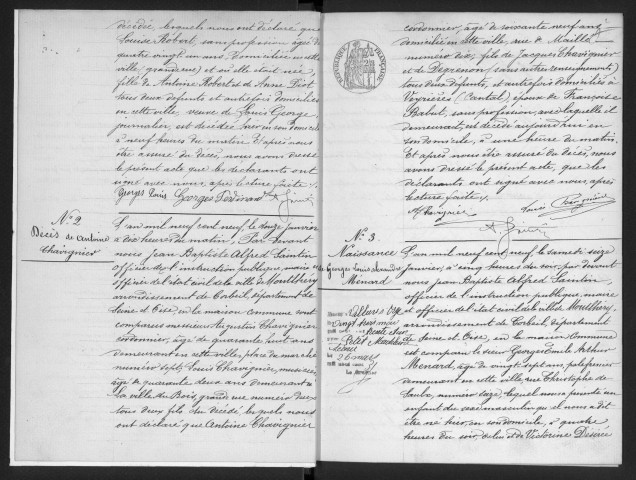 décédée, lesquels nous ont déclaré que
Louise Robert, sans profession, âgée de
quatre vingt un ans, domiciliée en cette
ville, grande rue, et où elle était née,
fille de Antoine Robert et de Anne
tous deux défunts et autrefois domiciliés
en cette ville, veuve de Louis George,
journalier, est décédée hier en son domicile
à neuf heures du matin. Et après nous
être assuré du décès, nous avons dressé
le présent acte que les déclarants ont
signé avec nous, après lecture faite.
Georges Louis Georges Ferdinand
N° 2
Décès de Antoine
Chavignier
L'an mil neuf cent neuf, le douze janvier
à dix heures du matin, Par devant
nous Jean Baptiste Alfred Saintin
officier de l'instruction publique, maire et
officier de l'état civil de la ville de Montlhéry
arrondissement de Corbeil, département de
Seine et Oise, en la maison commune sont
comparus messieurs Chavignier
cordonnier, âgé de quarante huit ans
demeurant en cette ville, place du marché
numéro sept; Louis Chavignier,
âgé de quarante deux ans demeurant à
la ville du Bois, grande rue numéro
tous deux fils du décédé, lesquels nous
ont déclaré que Antoine Chavignier
RÉPUBLIQUE FRANÇAISE
cordonnier, âgé de soixante neuf ans
domicilié en cette ville, rue de
numéro dix, fils de Jacques Chavignier
et de Degrenon (sans autres renseignements)
tous deux défunts, et autrefois domiciliés à
(Cantal), époux de Françoise
Babut, sans profession, avec laquelle il
demeurait, est décédé aujourd'hui en
son domicile, à une heure du matin.
Et après nous être assuré du décès, nous
avons dressé le présent acte, que les
déclarants ont signé avec nous, après
lecture faite.
Chavignier Louis Chavignier
N° 3
Naissance
de Georges Louis
Ménard
L'an mil neuf cent neuf, le samedi seize
janvier, à cinq heures du soir, par devant
nous Jean Baptiste Alfred Saintin,
officier de l'instruction publique, maire
et officier de l'état civil de la ville de Montlhéry,
arrondissement de Corbeil, département
de Seine et Oise, en la maison commune
est comparu le sieur Georges Emile Arthur
Ménard, âgé de vingt sept ans, palefrenier
demeurant en cette ville rue Christophe de
Saulx, numéro onze, lequel nous présente un
enfant du sexe masculin qu'il nous a dit
être né hier, en son domicile, à quatre
heures du soir, de lui et de Victorine Désirée